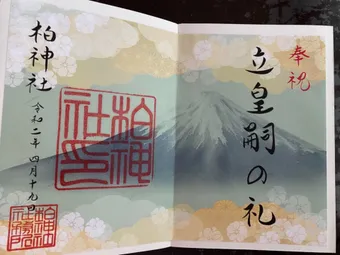 奉祝
立皇嗣の礼
柏神社
令和二年四月十九日
柏神社印